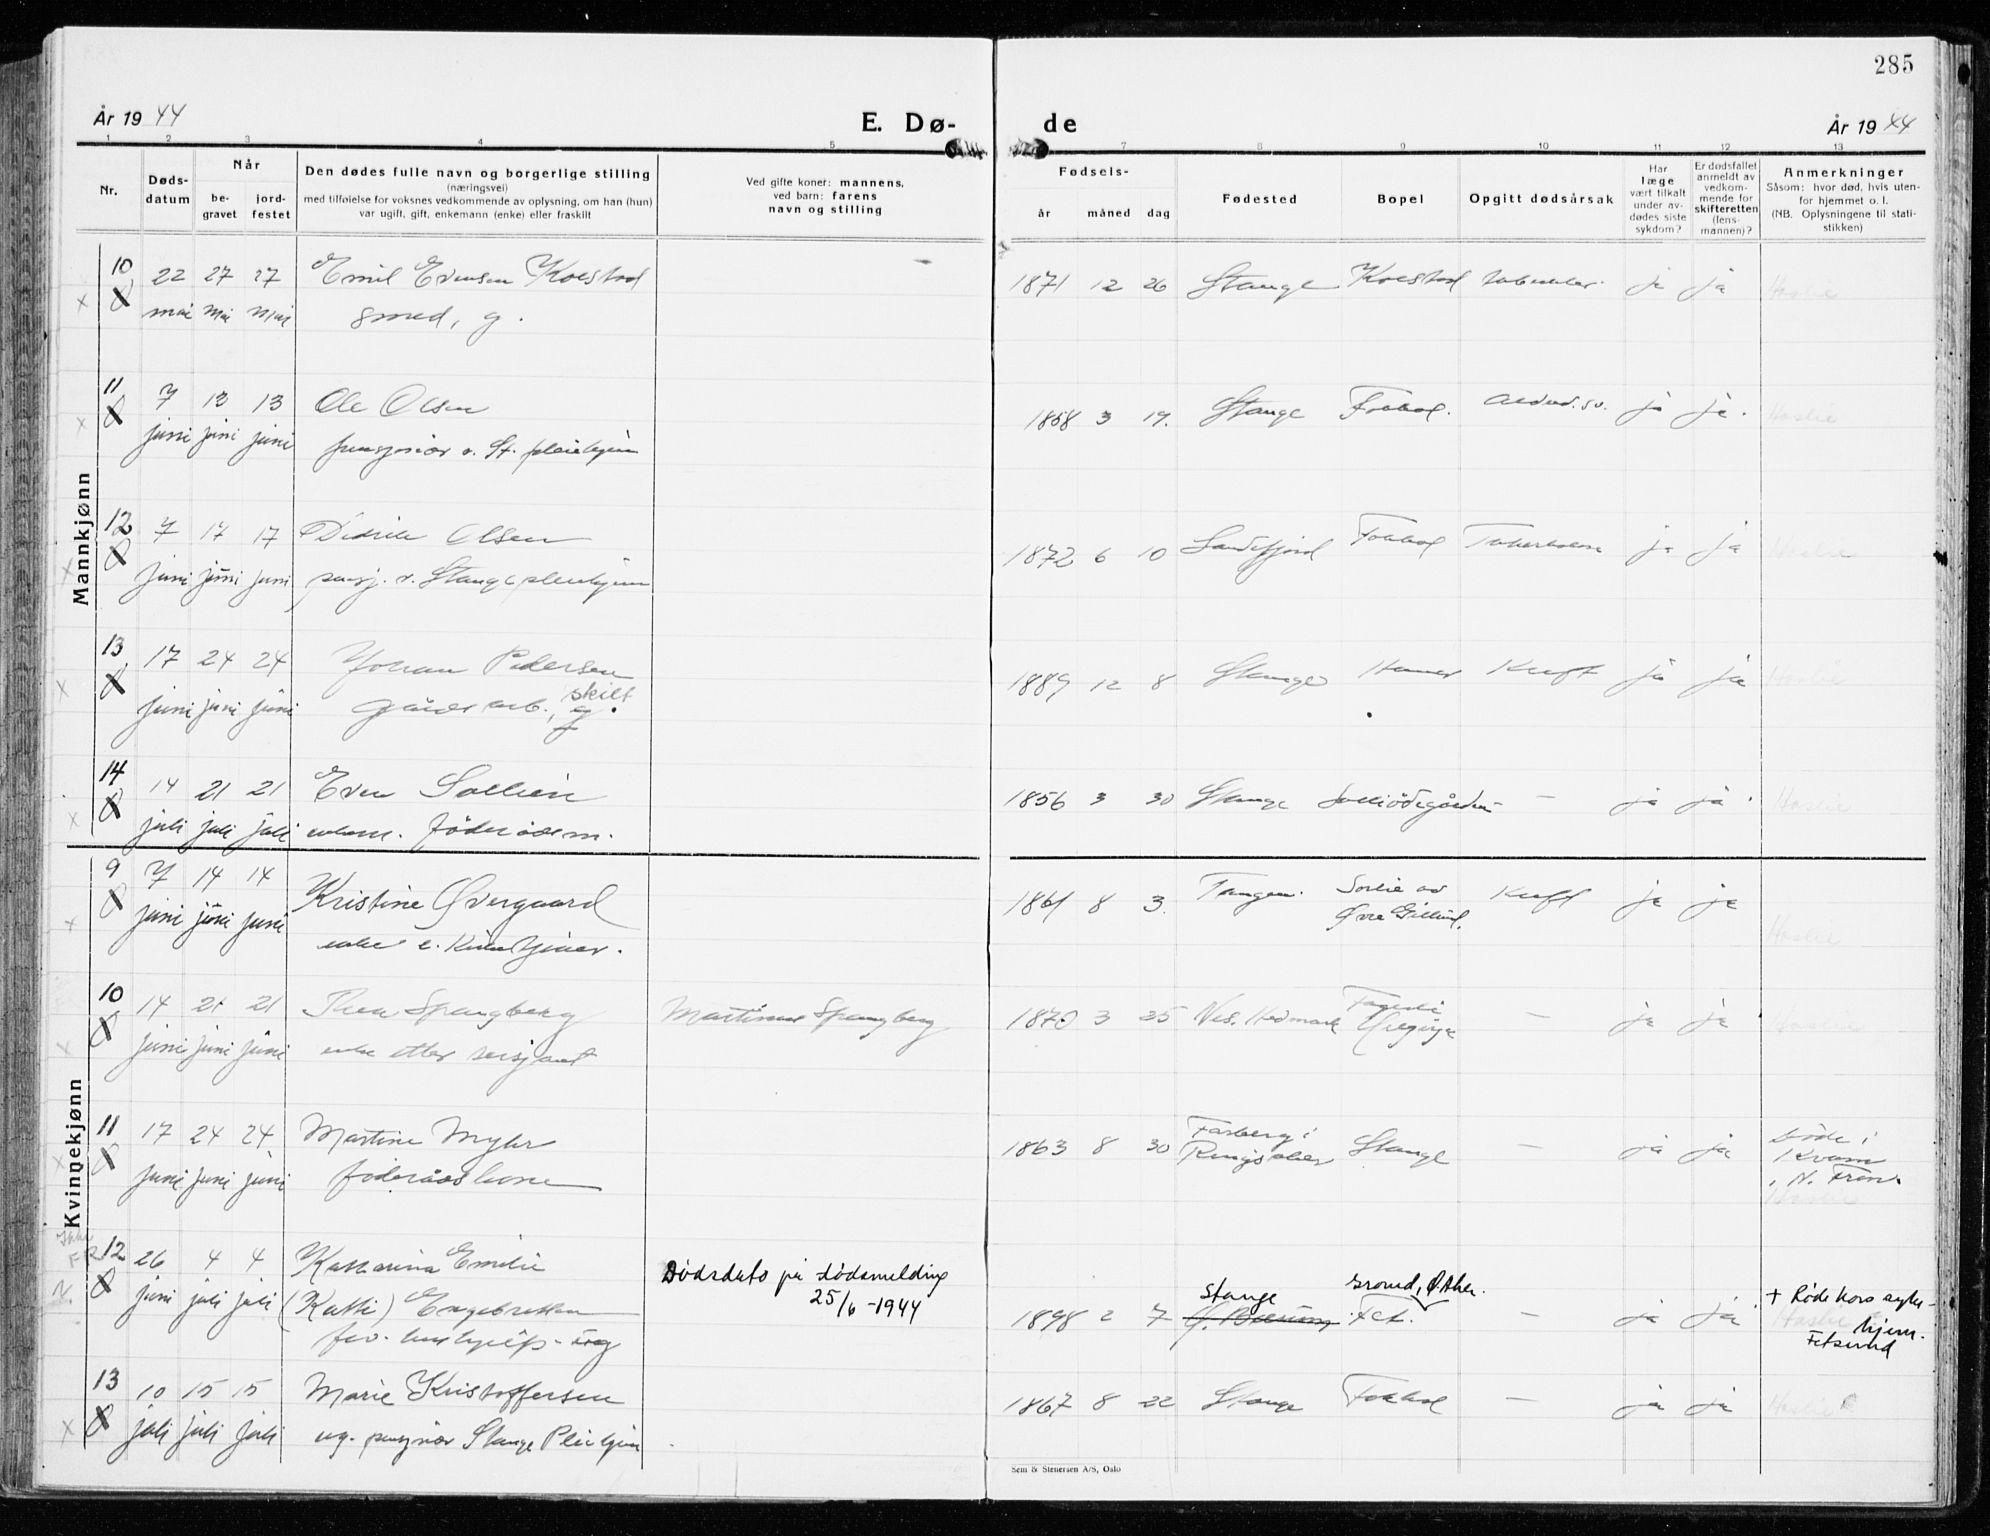 285
År 1944
E. Dø-
de
År 1944
1 2 3 4 5 7 8 9 10 11 12 13
Nr.
Døds-
datum
Når
be-
gravet
jord-
festet
Den dødes fulle navn og borgerlige stilling
(næringsvei)
med tilføielse for voksnes vedkommende av oplysning, om han (hun)
var ugift, gift, enkemann (enke) eller fraskilt
Ved gifte koner: mannens,
ved barn: farens
navn og stilling
Fødsels-
år måned dag
Fødested
Bopel
Opgitt dødsårsak
Har
læge
vært tilkalt
under av-
dødes siste
sykdom?
Er dødsfallet
anmeldt av
vedkom-
mende for
skifteretten
(lens-
mannen)?
Anmerkninger
Såsom: hvor død, hvis uten-
for hjemmet o. l.
(NB. Oplysningene til stati-
stikken)
Mannkjønn
10 22 27 27 Emil Evensen Kolstad 1871 12 26 Stange Kolstad ja ja Haslie
mai mai mai smed, g.
11 7 13 13 Ole Olsen 1858 3 19. Stange Fokhol. ja ja. Haslie
juni juni juni pensjonær v. St. pleiehjem
12 7 17 17 Didrik Olsen 1872 6 10 Sandefjord Fokhol Tuberkulose ja ja Haslie
juni juni juni pensj. v. Stange pleiehjem
13 17 24 24 Johan Pedersen 1889 12 8 Stange Hamar Kreft ja ja Haslie
juni juni juni gårdsarb., g. skilt
14 14 21 21 Even Sollien 1856 3 30 Stange Solliødegården - ja ja Haslie
juli juli juli enkem. føderådsm.
Kvinnekjønn
9 7 14 14 Kristine Øvergaard 1861 8 3. Tangen. Sorlie av Kreft ja ja
juni juni juni enke e. Kirketjener. Øvre Gillund. Haslie
10 14 21 21 Thea Spangberg Martinus Spangberg 1870 3 25 Nes. Hedmark Fagerli - ja ja Haslie
juni juni juni enke etter sersjant
11 17 24 24 Martine Myhr 1863 8 30 Faaberg i Stange - ja ja døde i
juni juni juni føderådskone Ringsaker Kvam
i N. Fron.
Haslie
Ikke
FR
12 26 4 4 Katharina Emilie Dødsdato på dødsmelding
N. juni juli juli (Kathi) Engebretsen 25/6-1944
fhv. hushjelp - ug
1898 2 7 Stange Fet. - ja ja + Røde Kors syke-
hjem.
Fetsund
13 10 15 15 Marie Kristoffersen 1867 8 22 Stange Fokhol - ja ja Haslie
juli juli juli ug. pensjonær Stange Pleiehjem
Sem & Stenersen A/S, Oslo